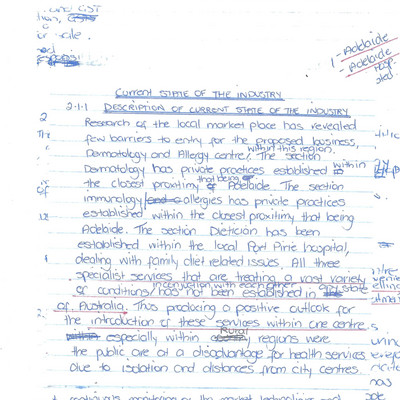 and GST
or sale.
1 - Adelaide
- Adelaide
CURRENT STATE OF THE INDUSTRY
2.1.1 DESCRIPTION OF CURRENT STATE OF THE INDUSTRY
Research of the local market place has revealed
few barriers to entry for the proposed business,
within this region.
Dermatology and Allergy centre. The section
Dermatology has private practices established within
that being
the closest proximity, Adelaide. The section
immunology / allergies has private practices
established within the closest proximity that being
Adelaide. The section Dietician has been
established within the local Port Pirie hospital,
dealing with family diet related issues. All three
specialist services that are treating a vast variety
in conjunction with each other
or conditions/has not been established in any state
of Australia. Thus producing a positive outlook for
the introduction of these services within one centre
Rural
within especially within regions were
the public are at a disadvantage for health services
due to isolation and distances from city centres.